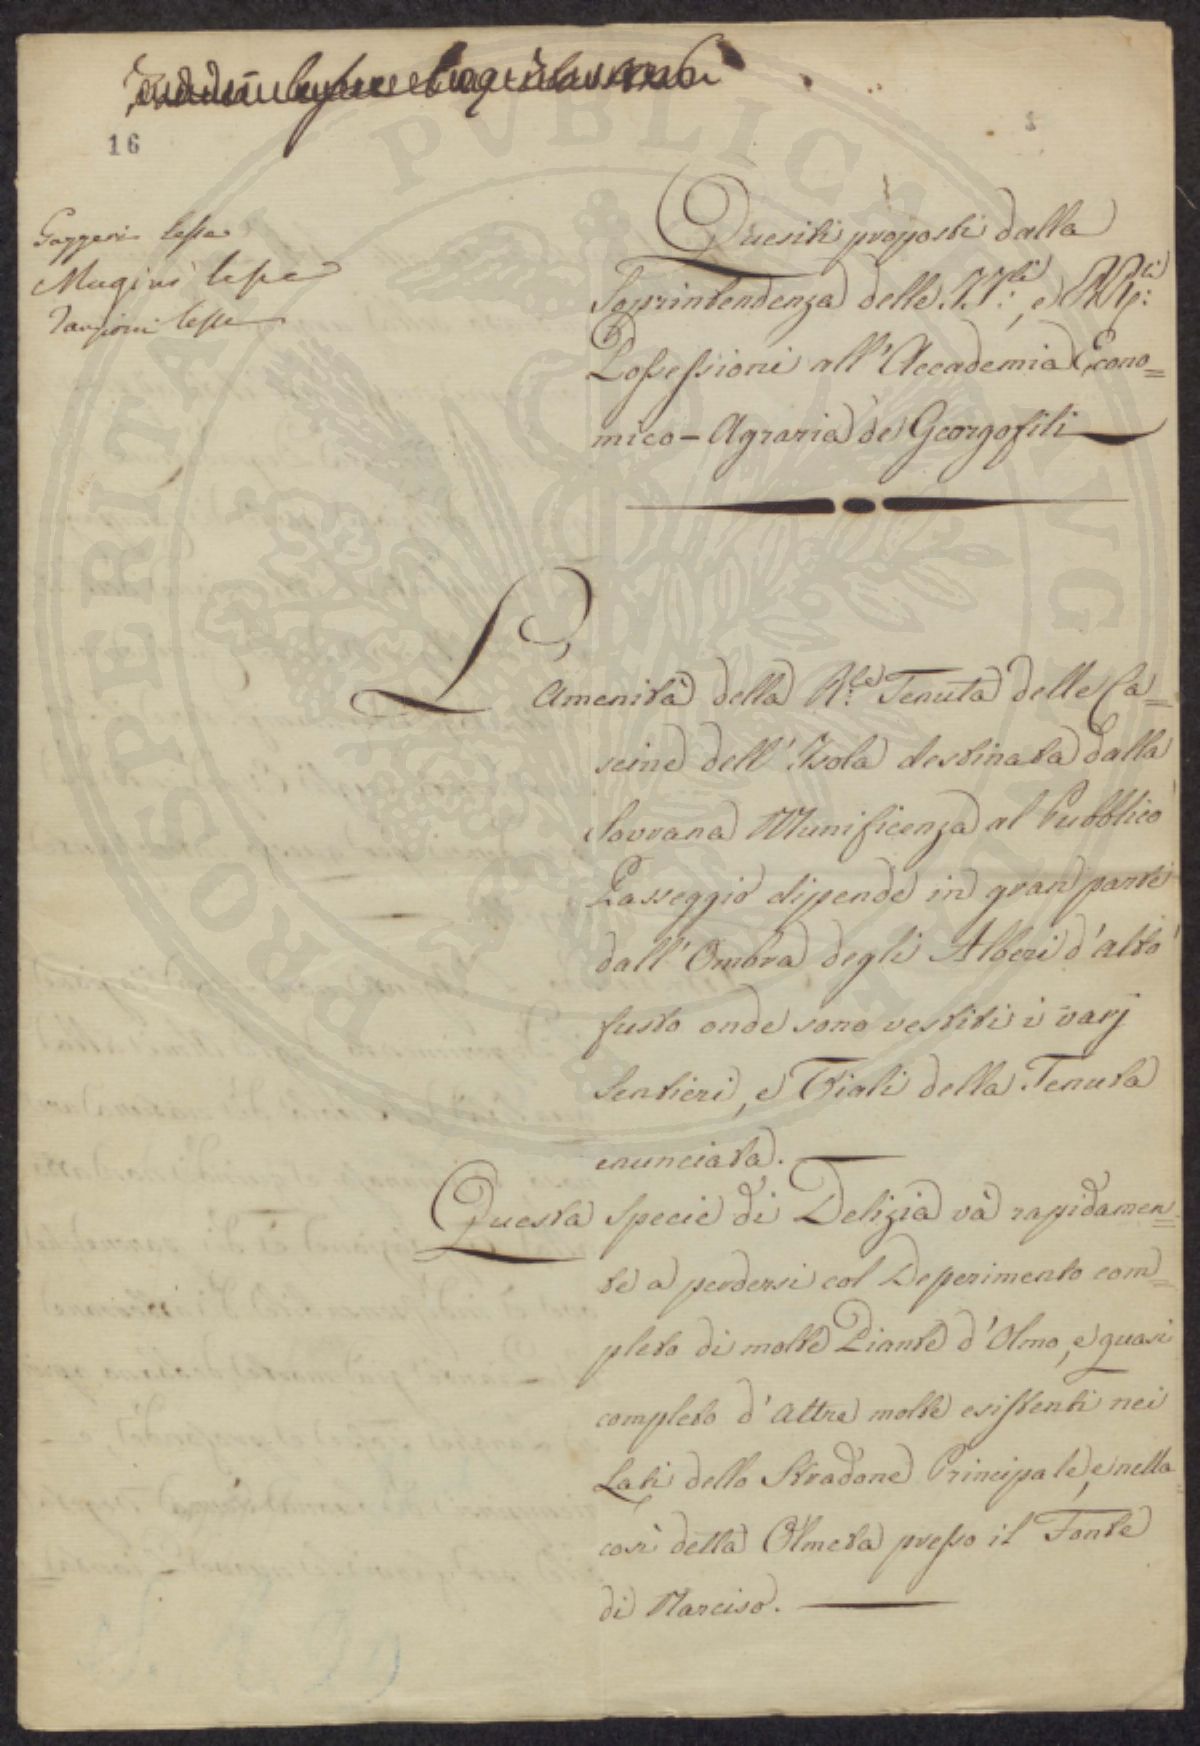 16
1
Gazzeri lesse
Magini lesse
Targioni lesse
Quesiti proposti dalla
Soprintendenza delle II:li, e RR:li
Possessioni all'Accademia Econo=
mico-Agraria de Georgofili
L'Amenità della R:le Tenuta delle Ca=
scine dell'Isola destinata dalla
Sovrana Munificenza al Pubblico
Passeggio dipende in gran parte
dall'Ombra degli Alberi d'alto
fusto onde sono vestiti i varj
Sentieri, e Viali della Tenuta
enunciata.
Questa specie di Delizia và rapidamen=
te a perdersi col Deperimento com=
pleto di molte Piante d'Olmo, e quasi
completo d'Altre molte esistenti nei
Lati dello Stradone Principale, e nella
così detta Olmeta presso il Fonte
di Narciso.
PROSPERITATI PVBLICAE AVGENDAE